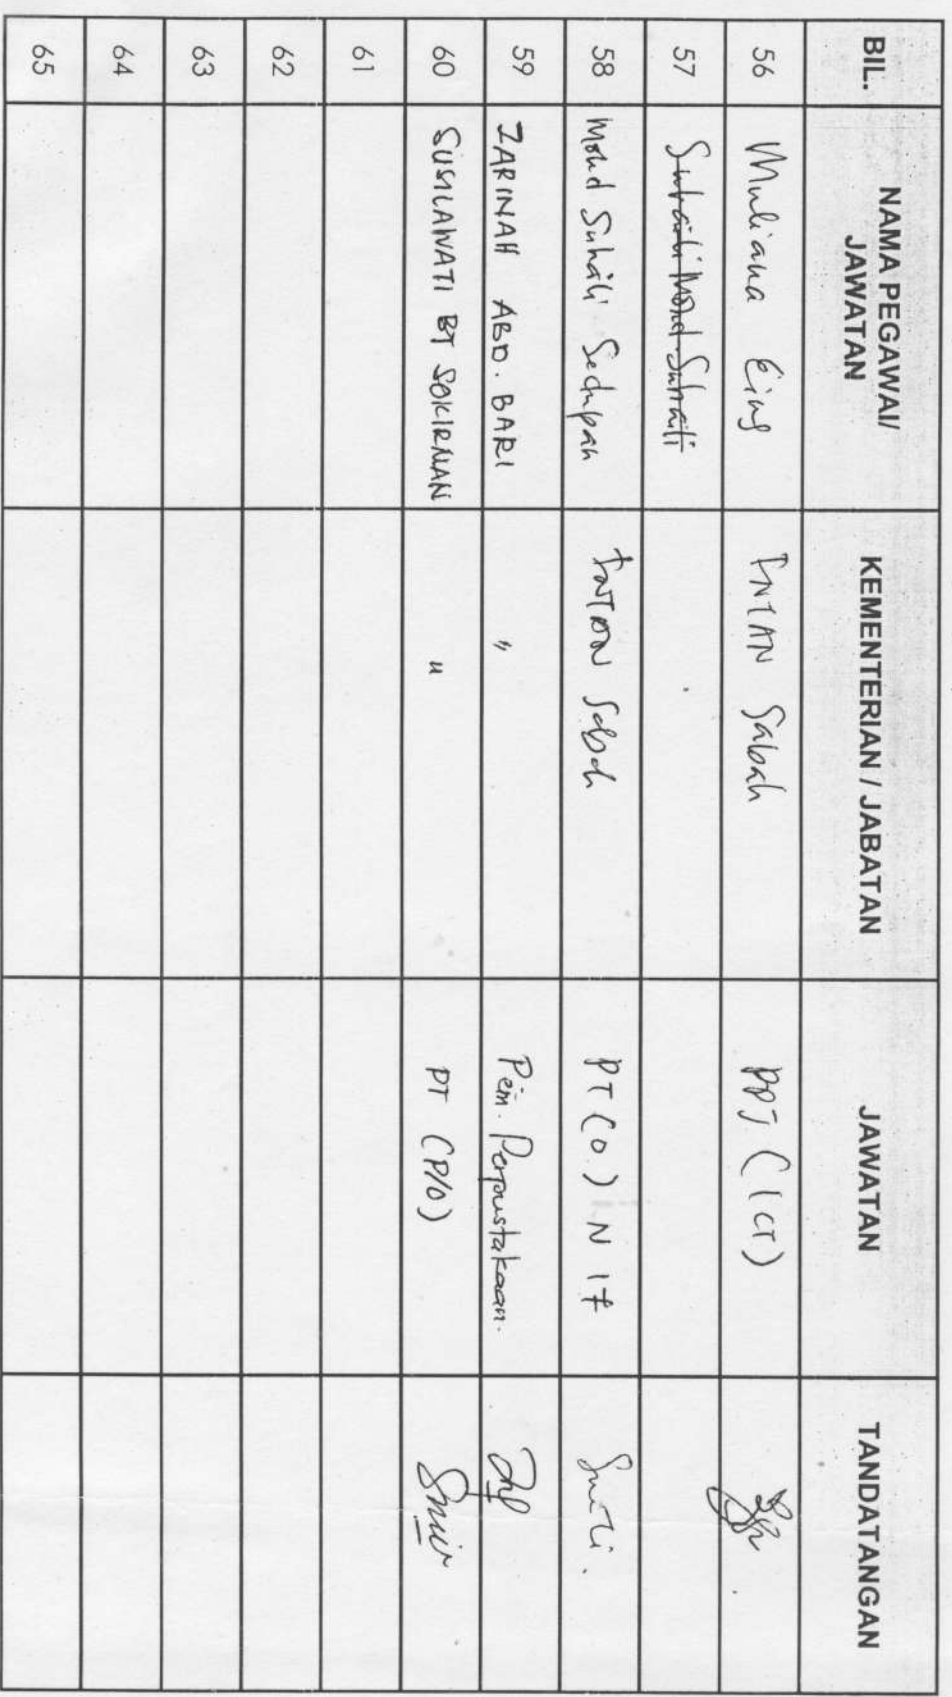 BIL. NAMA PEGAWAI/ JAWATAN KEMENTERIAN / JABATAN JAWATAN TANDATANGAN
56 Muliana Eing INTAN Sabah PPT (ICT)
57 Suhaili Mohd Suhaili
58 Mohd Suhaili Sedupan INTAN Sabah PT (O) N 17
59 ZARINAH ABD. BARI " Pem. Perpustakaan.
60 SUSILAWATI BT SOKIRMAN " PT (P/O)
61
62
63
64
65